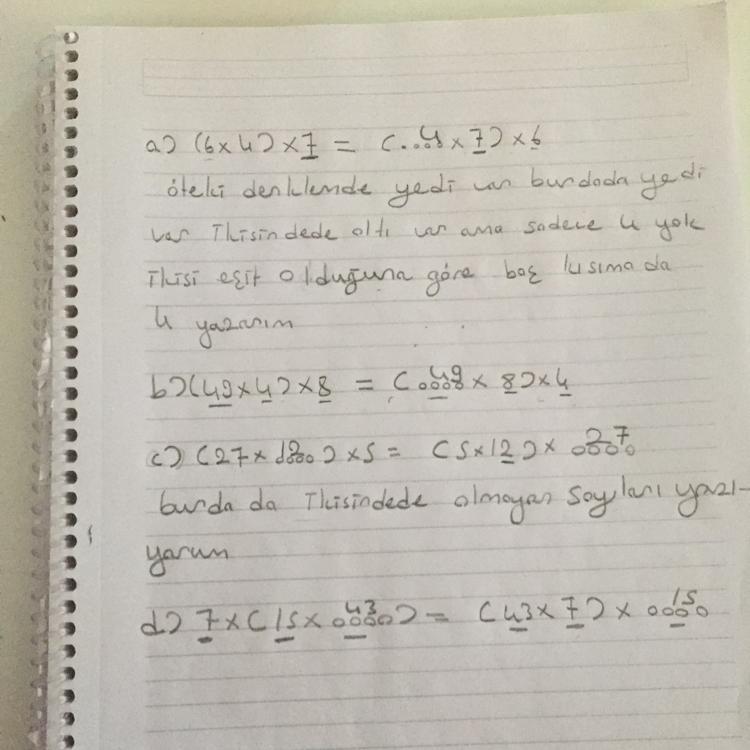 a) (6x4)x7 = (...4x7)x6
öteki denklemde yedi var burdada yedi
var İkisindede altı var ama sadece 4 yok
ikisi eşit olduğuna göre boş kısıma da
4 yazarım
b) (49x4)x8 = (...49x8)x4
c) (27x12...)x5 = (5x12)x...27
burda da İkisindede olmayan sayıları yazı-
yorum
d) 7x(15x...43) = (43x7)x...15